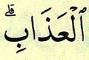 ٱلْعَذَابِۗ